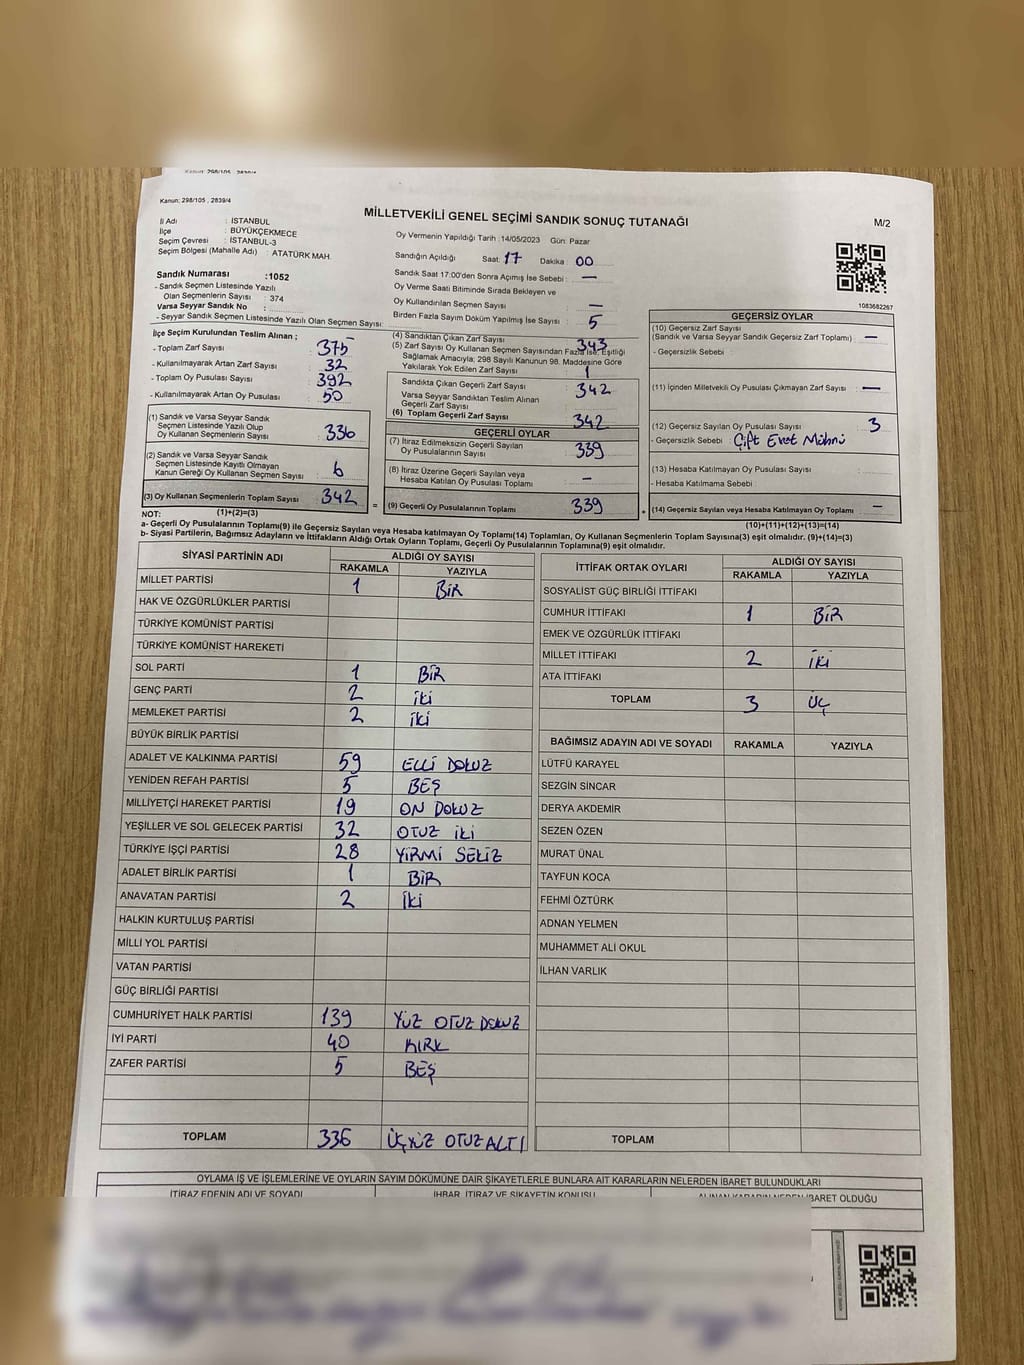 Kanun: 298/105 , 2839/4
MİLLETVEKİLİ GENEL SEÇİMİ SANDIK SONUÇ TUTANAĞI
M/2
İl Adı : İSTANBUL
İlçe : BÜYÜKÇEKMECE
Seçim Çevresi : İSTANBUL-3
Seçim Bölgesi (Mahalle Adı) : ATATÜRK MAH.
Sandık Numarası :1052
- Sandık Seçmen Listesinde Yazılı
Olan Seçmenlerin Sayısı : 374
Varsa Seyyar Sandık No :
- Seyyar Sandık Seçmen Listesinde Yazılı Olan Seçmen Sayısı:
Oy Vermenin Yapıldığı Tarih :14/05/2023 Gün: Pazar
Sandığın Açıldığı Saat: 17 Dakika : 00
Sandık Saat 17:00'den Sonra Açımış İse Sebebi : —
Oy Verme Saati Bitiminde Sırada Bekleyen ve
Oy Kullandırılan Seçmen Sayısı : —
Birden Fazla Sayım Döküm Yapılmış İse Sayısı : 5
1083682267
İlçe Seçim Kurulundan Teslim Alınan ;
- Toplam Zarf Sayısı : 375
- Kullanılmayarak Artan Zarf Sayısı : 32
- Toplam Oy Pusulası Sayısı : 392
- Kullanılmayarak Artan Oy Pusulası : 50
(1) Sandık ve Varsa Seyyar Sandık
Seçmen Listesinde Yazılı Olup
Oy Kullanan Seçmenlerin Sayısı : 336
(2) Sandık ve Varsa Seyyar Sandık
Seçmen Listesinde Kayıtlı Olmayan
Kanun Gereği Oy Kullanan Seçmen Sayısı : 6
(3) Oy Kullanan Seçmenlerin Toplam Sayısı : 342
(4) Sandıktan Çıkan Zarf Sayısı : 343
(5) Zarf Sayısı Oy Kullanan Seçmen Sayısından Fazla İse; Eşitliği
Sağlamak Amacıyla; 298 Sayılı Kanunun 98. Maddesine Göre
Yakılarak Yok Edilen Zarf Sayısı : 1
Sandıkta Çıkan Geçerli Zarf Sayısı : 342
Varsa Seyyar Sandıktan Teslim Alınan
Geçerli Zarf Sayısı :
(6) Toplam Geçerli Zarf Sayısı : 342
GEÇERLİ OYLAR
(7) İtiraz Edilmeksizin Geçerli Sayılan
Oy Pusulalarının Sayısı : 339
(8) İtiraz Üzerine Geçerli Sayılan veya
Hesaba Katılan Oy Pusulası Toplamı : —
= (9) Geçerli Oy Pusulalarının Toplamı : 339
GEÇERSİZ OYLAR
(10) Geçersiz Zarf Sayısı
(Sandık ve Varsa Seyyar Sandık Geçersiz Zarf Toplamı) : —
- Geçersizlik Sebebi :
(11) İçinden Milletvekili Oy Pusulası Çıkmayan Zarf Sayısı : —
(12) Geçersiz Sayılan Oy Pusulası Sayısı : 3
- Geçersizlik Sebebi : Çift Evet Mührü
(13) Hesaba Katılmayan Oy Pusulası Sayısı :
- Hesaba Katılmama Sebebi :
+ (14) Geçersiz Sayılan veya Hesaba Katılmayan Oy Toplamı : —
NOT: (1)+(2)=(3)
(10)+(11)+(12)+(13)=(14)
a- Geçerli Oy Pusulalarının Toplamı(9) ile Geçersiz Sayılan veya Hesaba katılmayan Oy Toplamı(14) Toplamları, Oy Kullanan Seçmenlerin Toplam Sayısına(3) eşit olmalıdır. (9)+(14)=(3)
b- Siyasi Partilerin, Bağımsız Adayların ve İttifakların Aldığı Ortak Oyların Toplamı, Geçerli Oy Pusulalarının Toplamına(9) eşit olmalıdır.
SİYASİ PARTİNİN ADI ALDIĞI OY SAYISI
RAKAMLA YAZIYLA
MİLLET PARTİSİ 1 BİR
HAK VE ÖZGÜRLÜKLER PARTİSİ
TÜRKİYE KOMÜNİST PARTİSİ
TÜRKİYE KOMÜNİST HAREKETİ
SOL PARTİ 1 BİR
GENÇ PARTİ 2 İKİ
MEMLEKET PARTİSİ 2 İKİ
BÜYÜK BİRLİK PARTİSİ
ADALET VE KALKINMA PARTİSİ 59 ELLİ DOKUZ
YENİDEN REFAH PARTİSİ 5 BEŞ
MİLLİYETÇİ HAREKET PARTİSİ 19 ON DOKUZ
YEŞİLLER VE SOL GELECEK PARTİSİ 32 OTUZ İKİ
TÜRKİYE İŞÇİ PARTİSİ 28 YİRMİ SEKİZ
ADALET BİRLİK PARTİSİ 1 BİR
ANAVATAN PARTİSİ 2 İKİ
HALKIN KURTULUŞ PARTİSİ
MİLLİ YOL PARTİSİ
VATAN PARTİSİ
GÜÇ BİRLİĞİ PARTİSİ
CUMHURİYET HALK PARTİSİ 139 YÜZ OTUZ DOKUZ
İYİ PARTİ 40 KIRK
ZAFER PARTİSİ 5 BEŞ
TOPLAM 336 ÜÇYÜZ OTUZ ALTI
İTTİFAK ORTAK OYLARI ALDIĞI OY SAYISI
RAKAMLA YAZIYLA
SOSYALİST GÜÇ BİRLİĞİ İTTİFAKI
CUMHUR İTTİFAKI 1 BİR
EMEK VE ÖZGÜRLÜK İTTİFAKI
MİLLET İTTİFAKI 2 İKİ
ATA İTTİFAKI
TOPLAM 3 ÜÇ
BAĞIMSIZ ADAYIN ADI VE SOYADI RAKAMLA YAZIYLA
LÜTFÜ KARAYEL
SEZGİN SİNCAR
DERYA AKDEMİR
SEZEN ÖZEN
MURAT ÜNAL
TAYFUN KOCA
FEHMİ ÖZTÜRK
ADNAN YELMEN
MUHAMMET ALİ OKUL
İLHAN VARLIK
TOPLAM
OYLAMA İŞ VE İŞLEMLERİNE VE OYLARIN SAYIM DÖKÜMÜNE DAİR ŞİKAYETLERLE BUNLARA AİT KARARLARIN NELERDEN İBARET BULUNDUKLARI
İTİRAZ EDENİN ADI VE SOYADI İHBAR, İTİRAZ VE ŞİKAYETİN KONUSU ALINAN KARARIN NEDEN İBARET OLDUĞU